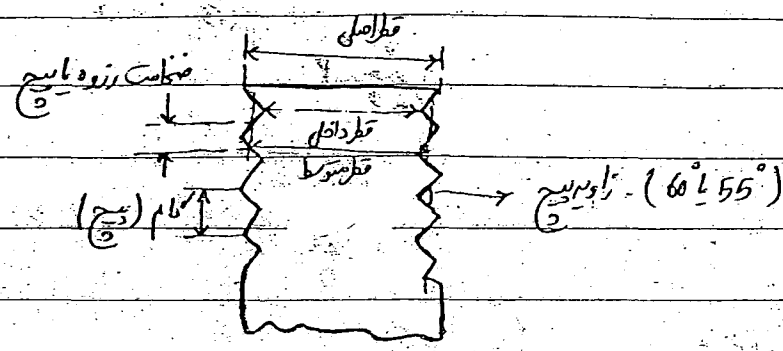 قطر اصلی
ضخامت رزوه یا پیچ
قطر داخلی
قطر متوسط
گام (پیچ)
زاویه پیچ - (55° یا 60°)